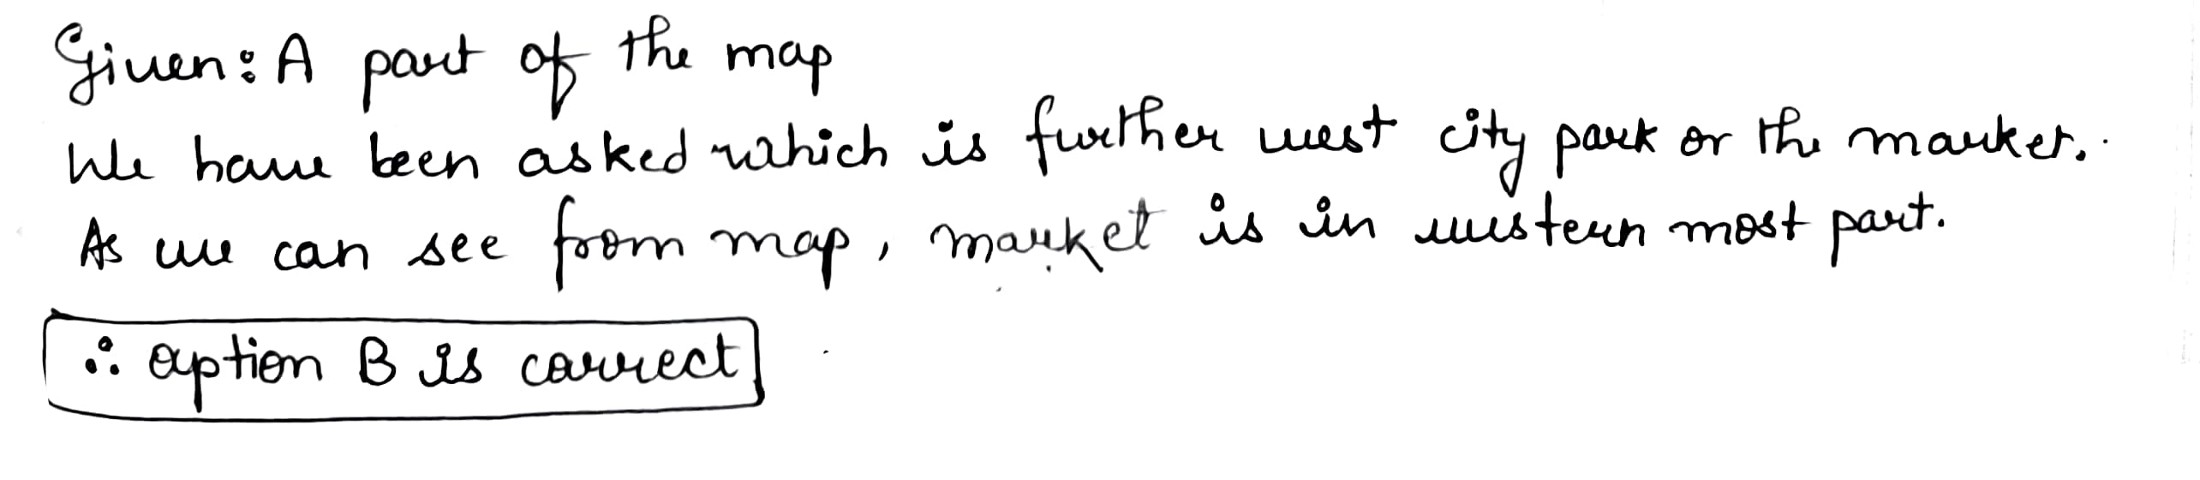 Given: A part of the map
We have been asked which is further west city park or the market.
As we can see from map, market is in western most part.
∴ option B is correct